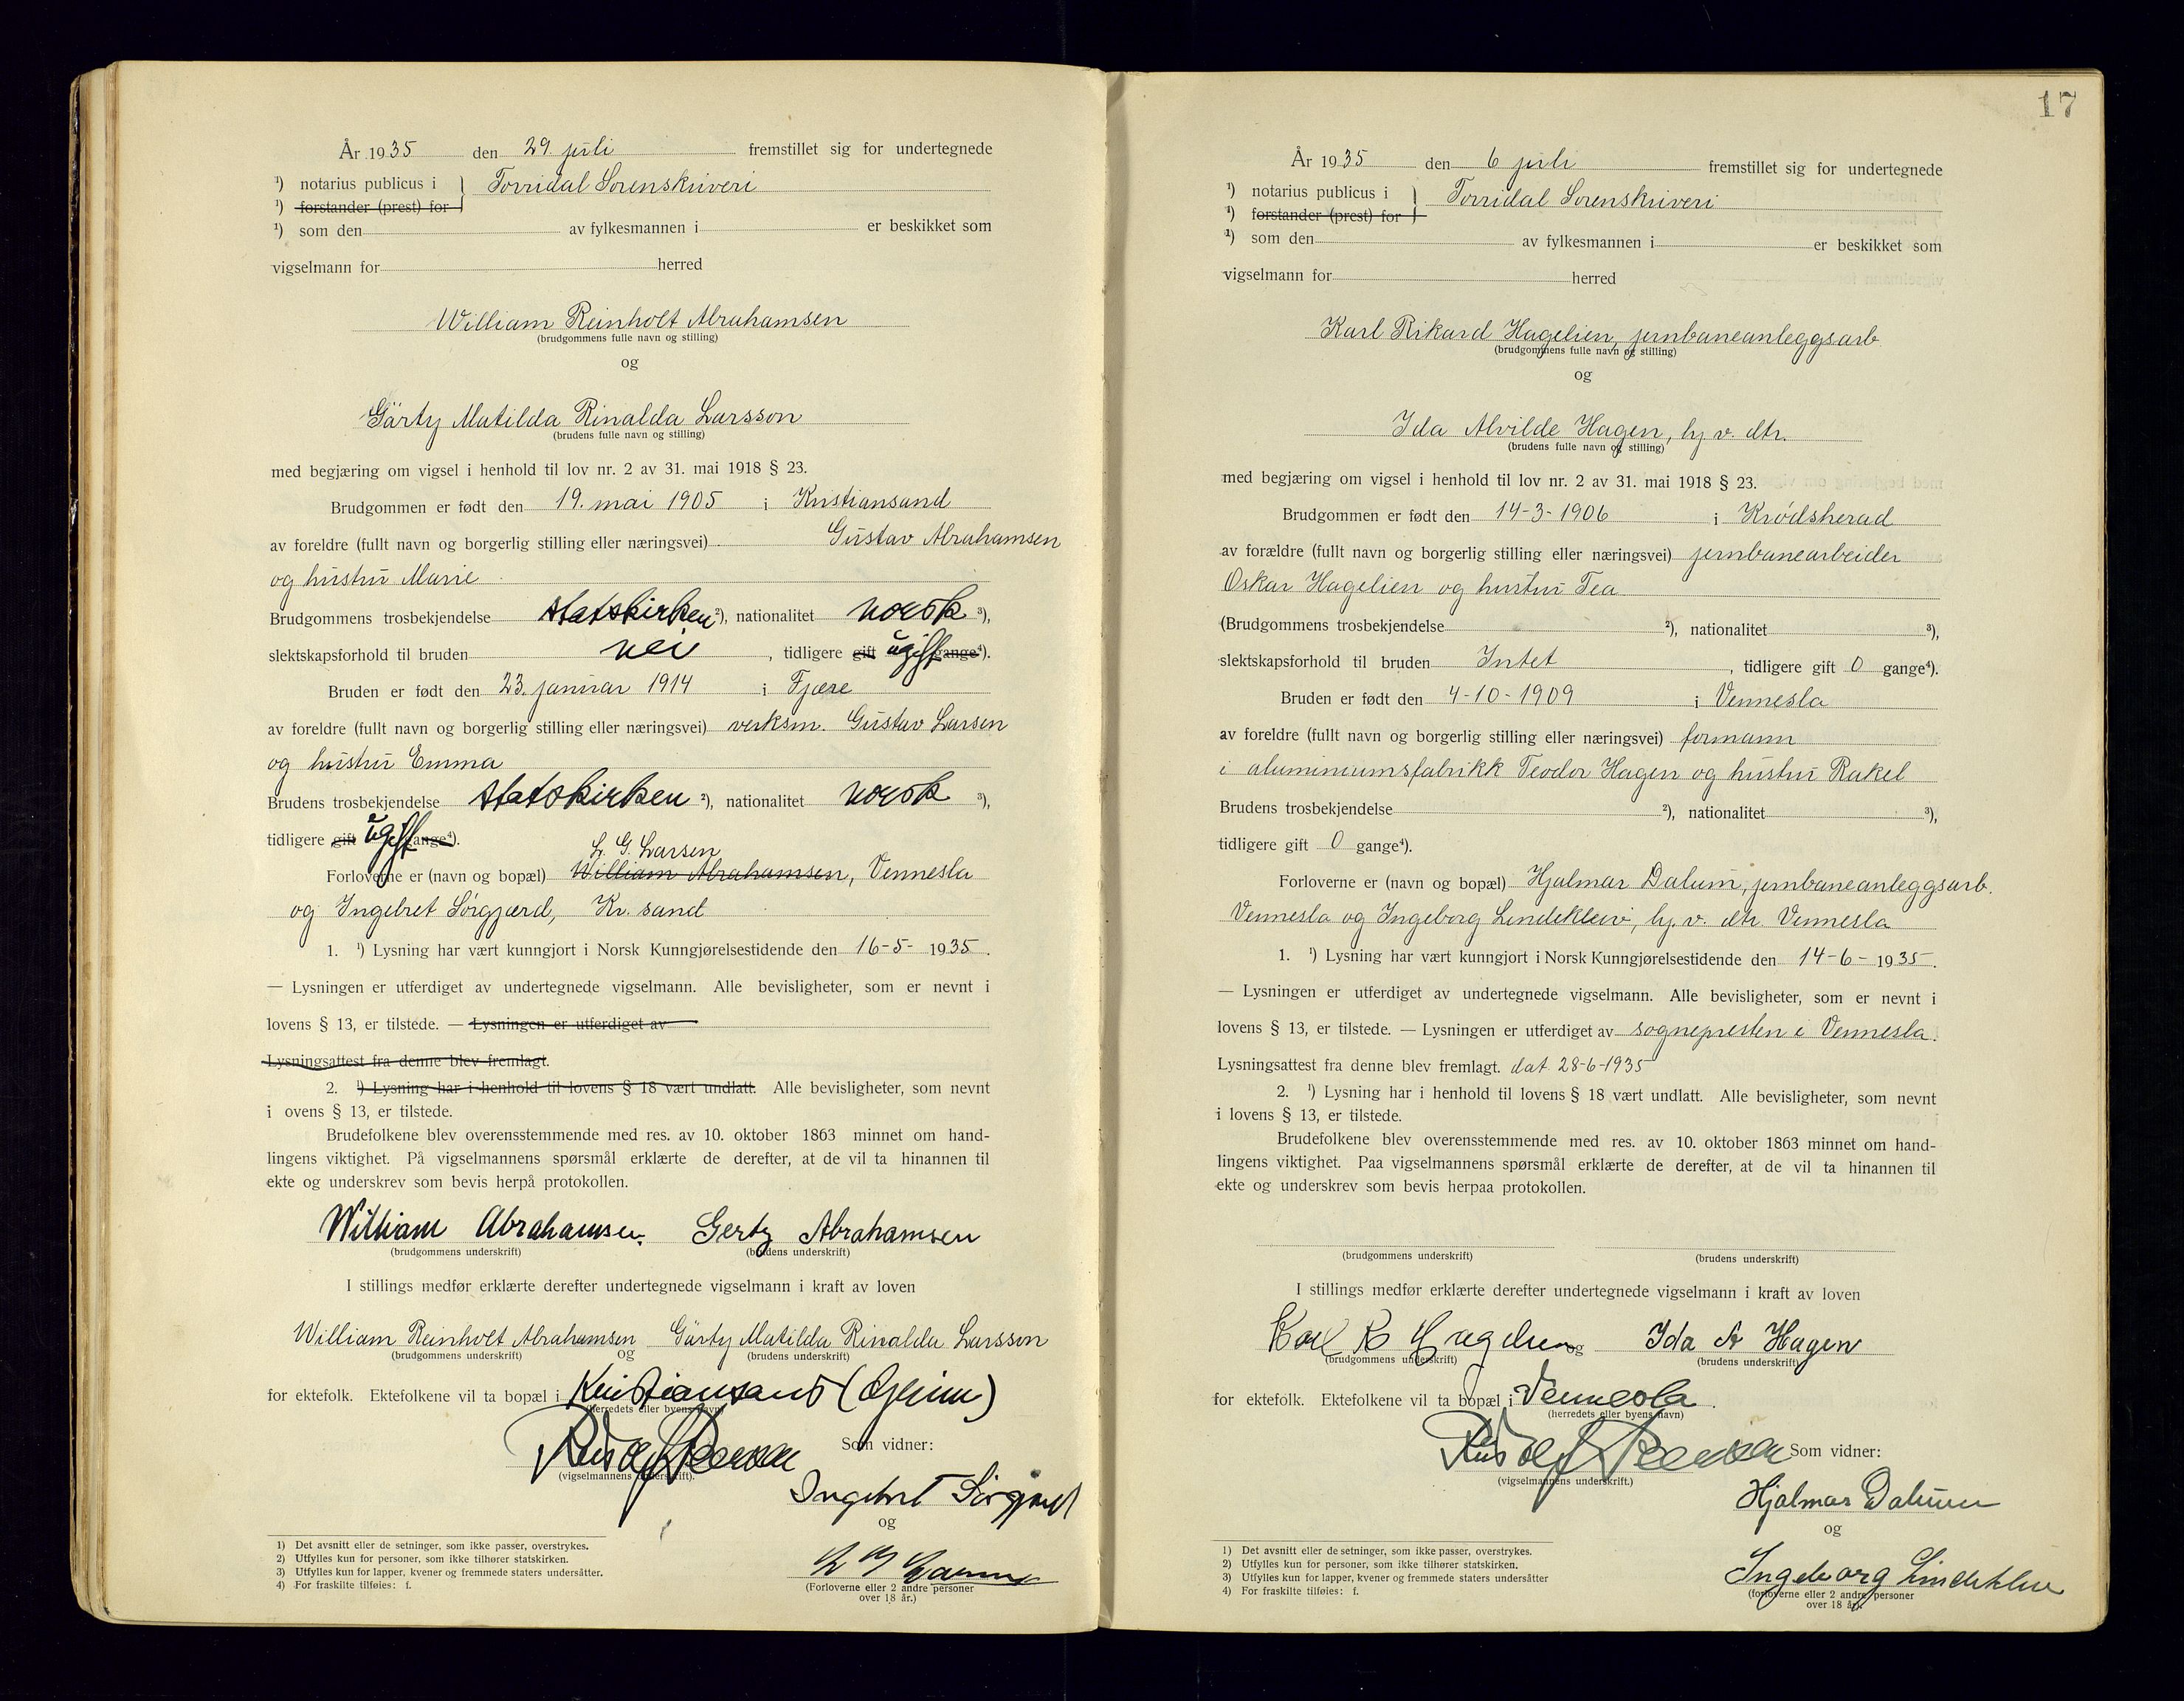 År 1935 den 29. juli fremstillet sig for undertegnede
¹) notarius publicus i } Torridal Sorenskriveri
¹) forstander (prest) for
¹) som den av fylkesmannen i er beskikket som
vigselmann for herred
William Reinholt Abrahamsen
(brudgommens fulle navn og stilling)
og
Gärty Matilda Rinalda Larsson
(brudens fulle navn og stilling)
med begjæring om vigsel i henhold til lov nr. 2 av 31. mai 1918 § 23.
Brudgommen er født den 19. mai 1905 i Kristiansand
av foreldre (fullt navn og borgerlig stilling eller næringsvei) Gustav Abrahamsen
og hustru Marie
Brudgommens trosbekjendelse statskirken ²), nationalitet norsk ³),
slektskapsforhold til bruden nei, tidligere gift ugift gange⁴).
Bruden er født den 23. januar 1914 i Fjære
av foreldre (fullt navn og borgerlig stilling eller næringsvei) verksm. Gustav Larsen
og hustru Emma
Brudens trosbekjendelse statskirken ²), nationalitet norsk ³),
tidligere gift ugift gange⁴).
L. G. Larsen
Forloverne er (navn og bopæl) William Abrahamsen, Vennesla
og Ingebret Sørgjærd, Kr. sand
1. ¹) Lysning har vært kunngjort i Norsk Kunngjørelsestidende den 16-5- 1935.
— Lysningen er utferdiget av undertegnede vigselmann. Alle bevisligheter, som er nevnt i
lovens § 13, er tilstede. — Lysningen er utferdiget av
Lysningsattest fra denne blev fremlagt.
2. ¹) Lysning har i henhold til lovens § 18 vært undlatt. Alle bevisligheter, som nevnt
i ovens § 13, er tilstede.
Brudefolkene blev overensstemmende med res. av 10. oktober 1863 minnet om hand-
lingens viktighet. På vigselmannens spørsmål erklærte de derefter, at de vil ta hinannen til
ekte og underskrev som bevis herpå protokollen.
William Abrahamsen. Gerty Abrahamsen
(brudgommens underskrift) (brudens underskrift)
I stillings medfør erklærte derefter undertegnede vigselmann i kraft av loven
William Reinholt Abrahamsen og Gärty Matilda Rinalda Larsson
(brudgommens underskrift) (brudens underskrift)
for ektefolk. Ektefolkene vil ta bopæl i Kristiansand (Grim)
(herredets eller byens navn)
Som vidner:
(vigselmannens underskrift).
Ingebret Sørgjærd
og
L G Larsen
(Forloverne eller 2 andre personer
over 18 år.)
1) Det avsnitt eller de setninger, som ikke passer, overstrykes.
2) Utfylles kun for personer, som ikke tilhører statskirken.
3) Utfylles kun for lapper, kvener og fremmede staters undersåtter.
4) For fraskilte tilføies: f.
17
År 1935 den 6 juli fremstillet sig for undertegnede
¹) notarius publicus i } Torridal Sorenskriveri
¹) forstander (prest) for
¹) som den av fylkesmannen i er beskikket som
vigselmann for herred
Karl Rikard Hagelien, jernbaneanleggsarb.
(brudgommens fulle navn og stilling)
og
Ida Alvilde Hagen, hj. v. dtr.
(brudens fulle navn og stilling)
med begjæring om vigsel i henhold til lov nr. 2 av 31. mai 1918 § 23.
Brudgommen er født den 14-3-1906 i Krødsherad
av forældre (fullt navn og borgerlig stilling eller næringsvei) jernbanearbeider
Oskar Hagelien og hustru Tea
(Brudgommens trosbekjendelse ²), nationalitet ³),
slektskapsforhold til bruden Intet, tidligere gift 0 gange⁴).
Bruden er født den 4-10-1909 i Vennesla
av foreldre (fullt navn og borgerlig stilling eller næringsvei) formann
i alumineumsfabrikk Teodor Hagen og hustru Rakel
Brudens trosbekjendelse ²), nationalitet ³),
tidligere gift 0 gange⁴).
Forloverne er (navn og bopæl) Hjalmar Dalum, jernbaneanleggsarb.
Vennesla og Ingeborg Lindekleiv, hj. v. dtr. Vennesla
1. ¹) Lysning har vært kunngjort i Norsk Kunngjørelsestidende den 14-6- 1935.
— Lysningen er utferdiget av undertegnede vigselmann. Alle bevisligheter, som er nevnt i
lovens § 13, er tilstede. — Lysningen er utferdiget av sognepresten i Vennesla.
Lysningsattest fra denne blev fremlagt. dat 28-6-1935
2. ¹) Lysning har i henhold til lovens § 18 vært undlatt. Alle bevisligheter, som nevnt
i lovens § 13, er tilstede.
Brudefolkene blev overensstemmende med res. av 10. oktober 1863 minnet om hand-
lingens viktighet. Paa vigselmannens spørsmål erklærte de derefter, at de vil ta hinannen til
ekte og underskrev som bevis herpaa protokollen.
(brudgommens underskrift) (brudens underskrift)
I stillings medfør erklærte derefter undertegnede vigselmann i kraft av loven
Karl R Hagelien og Ida A Hagen
(brudgommens underskrift) (brudens underskrift)
for ektefolk. Ektefolkene vil ta bopæl i Vennesla.
(herredets eller byens navn)
Som vidner:
(vigselmannens underskrift.)
Hjalmar Dalum
og
Ingeborg Lindekleiv
(forloverne eller 2 andre personer
over 18 år.)
1) Det avsnitt eller de setninger, som ikke passer, overstrykes.
2) Utfylles kun for personer, som ikke tilhører statskirken.
3) Utfylles kun for lapper, kvener og fremmede staters undersåtter
4) For fraskilte tilføies: f.